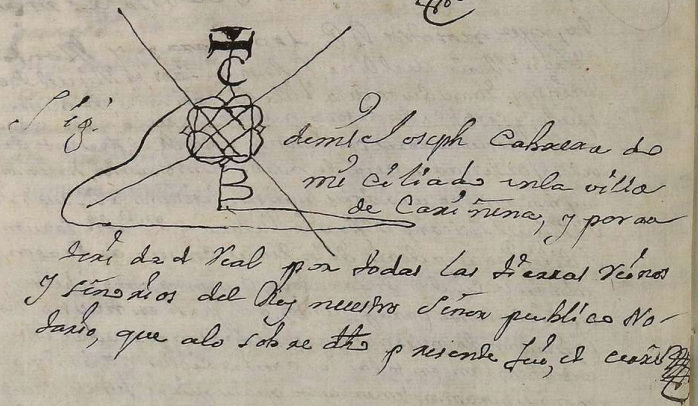 Sig.
de mi Joseph Cabrera do
miciliado en la villa
de Cariñena, y por au
toridad Real por todas las tierras Reinos
y señorios del Rey nuestro Señor publico No-
tario, que a lo sobre dho presente fui, et cerre